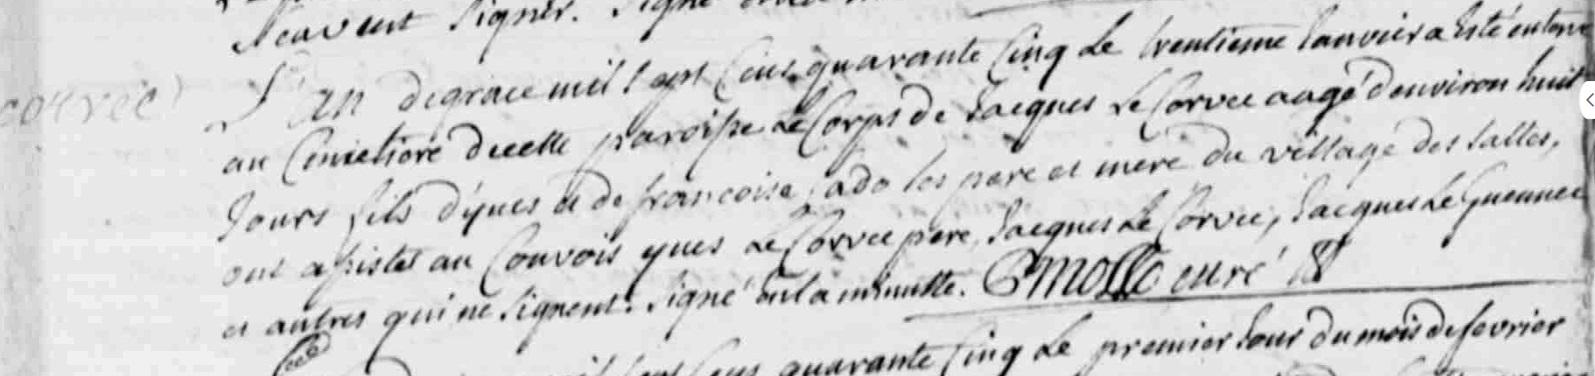 scavent signer. Signé
corvec
L'an de grace mil sept cens quarante cinq le trentieme Janvier a esté enterré
au Cimetiere de cette paroisse le Corps de Jacques Le Corvec aagé d'environ huit
Jours fils d'yves et de francoise cado ses pere et mere du village des salles,
ont assistes au Convois yves Le Corvec pere, Jacques Le Corvec, Jacques Le Guennec
et autres qui ne signent. Signé en la minutte. curé
quarante cinq le premier Jour du mois de fevrier